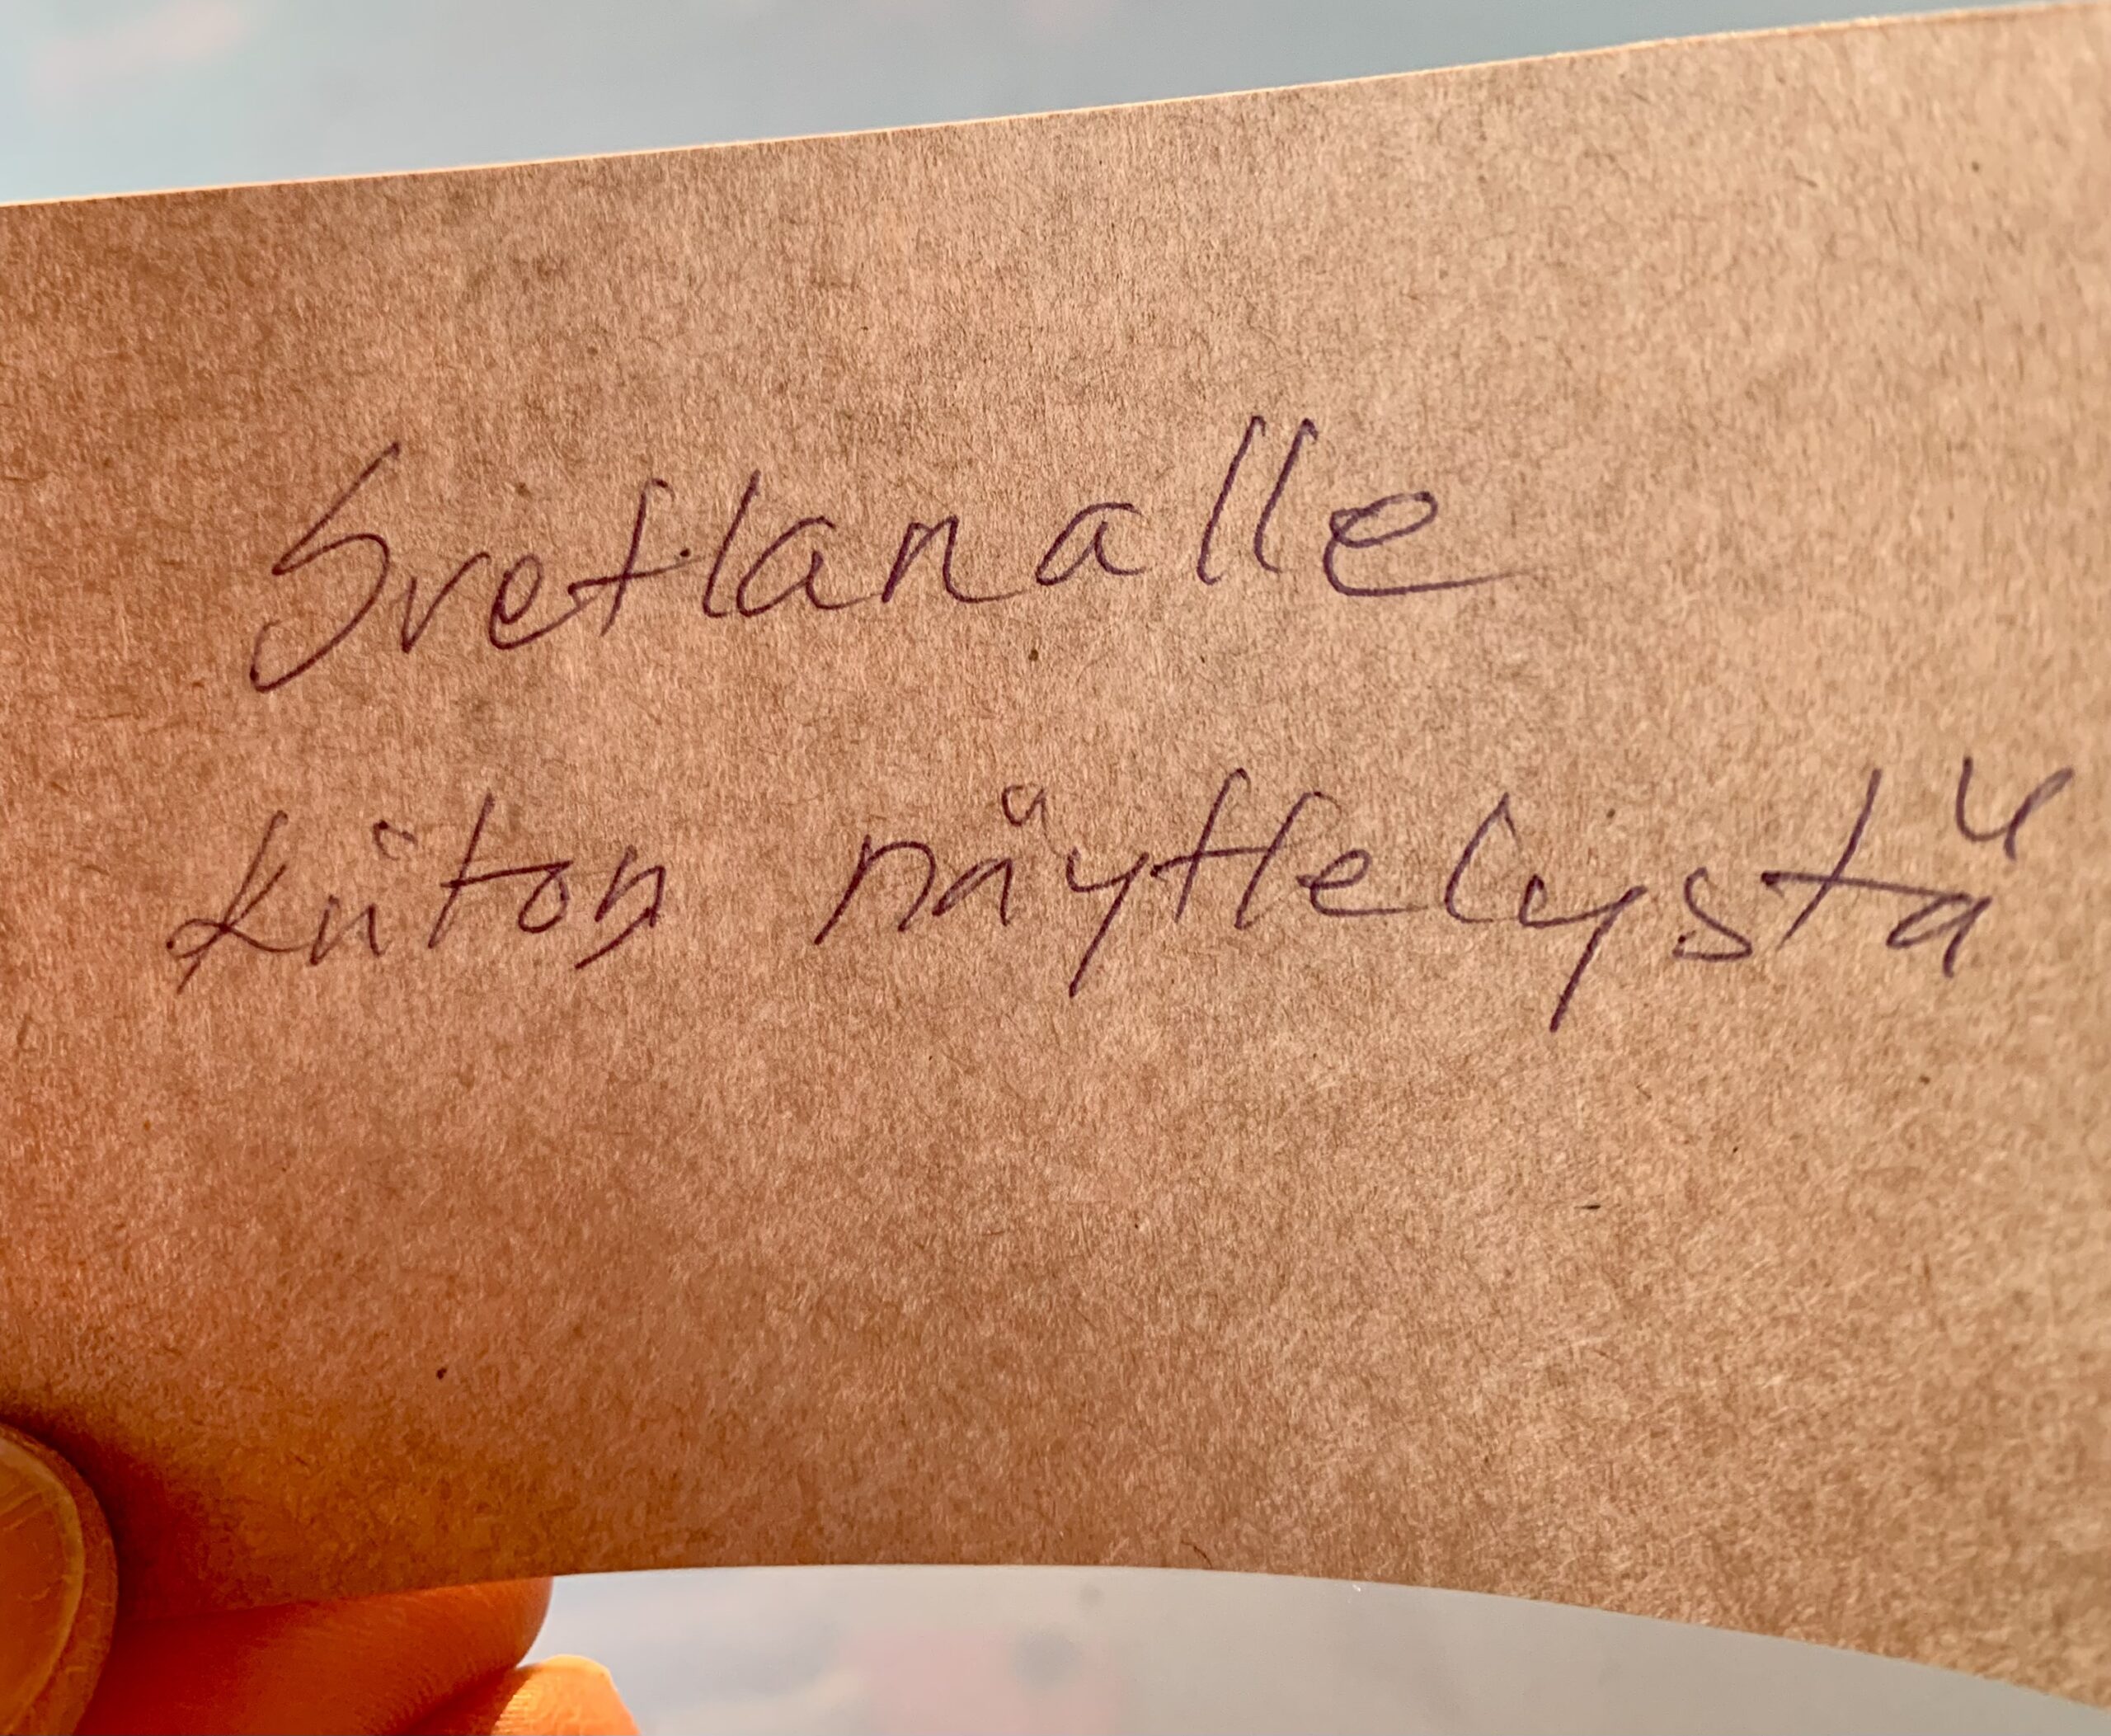 Svetlanalle
kiitos näyttelystä